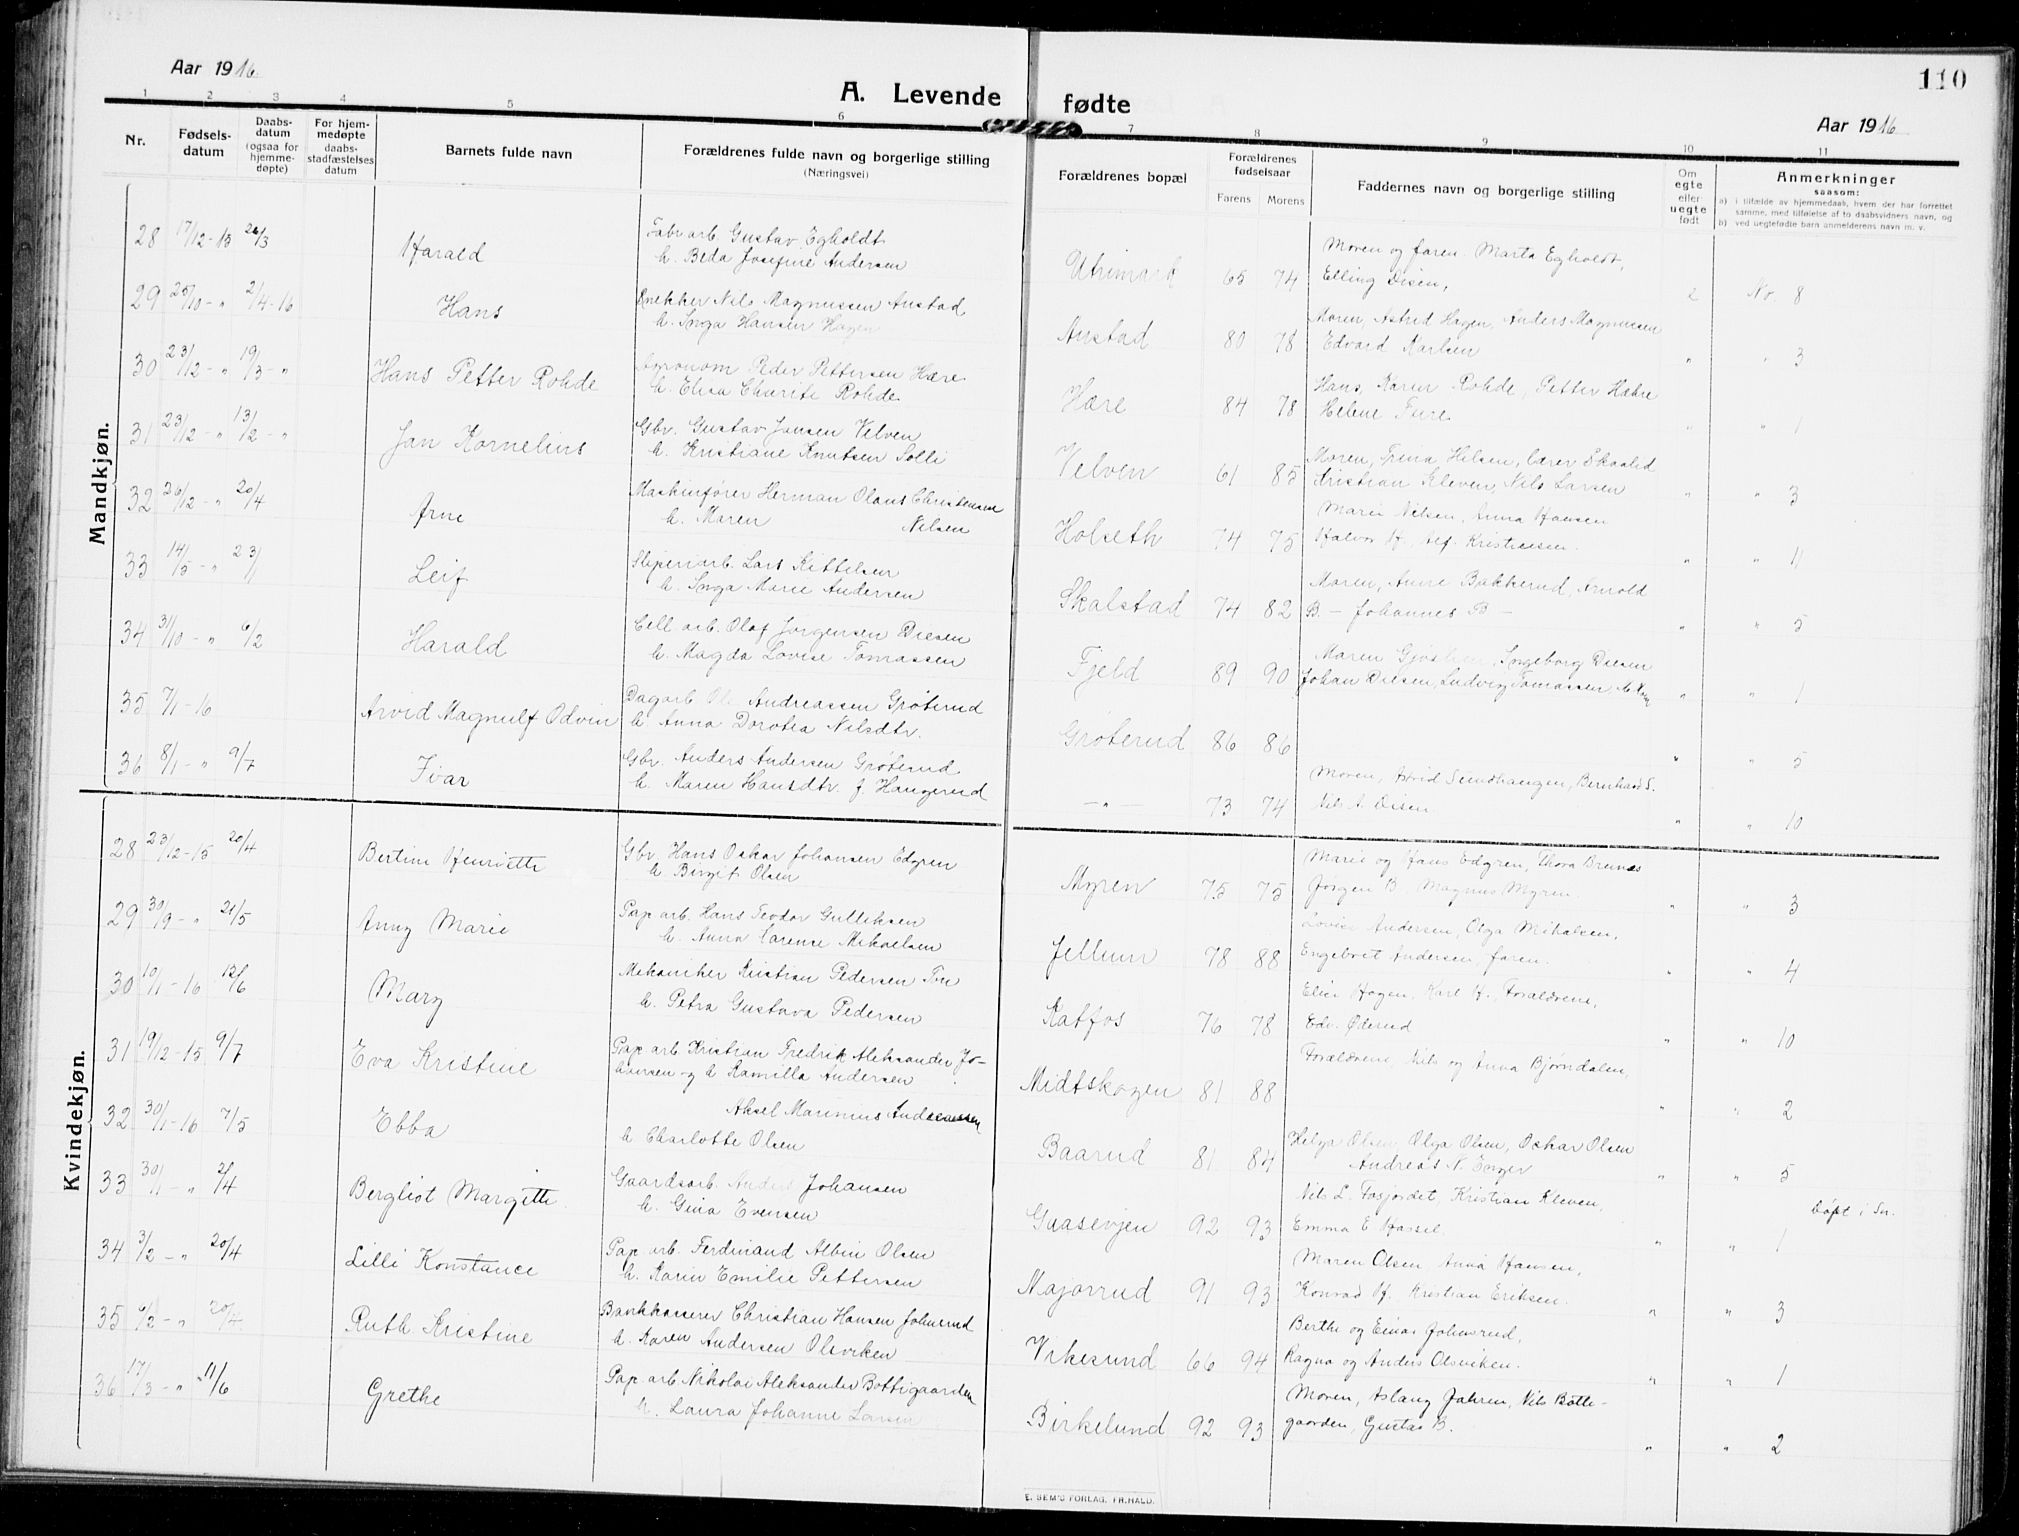 Aar 1916
A. Levende fødte
110
Aar 1916
1 2 3 4 5 6 7 8 9 10 11
Nr.
Fødsels-
datum
Daabs-
datum
(ogsaa for
hjemme-
døpte)
For hjem-
medøpte
daabs-
stadfæstelses
datum
Barnets fulde navn
Forældrenes fulde navn og borgerlige stilling
(Næringsvei)
Forældrenes bopæl
Forældrenes
fødselsaar
Farens Morens
Faddernes navn og borgerlige stilling
Om
egte
eller
uegte
født
Anmerkninger
saasom:
a) i tilfælde av hjemmedaab, hvem der har forrettet
samme, med tilføielse af to daabsvidners navn, og
b) ved uegtefødte barn anmelderens navn m. v.
Mandkjøn.
28 17/12-15 26/3 Harald
Fabr arb. Gustav Egholdt
h. Beda Josefine Andersen
65 74
Moren og faren. Marta Egholdt,
Elling Disen,
2 No. 8
29 25/10 - " 2/4-16 Hans
Nils Magnussen Austad
h. Inga Hansen Hagen
Austad 80 78
Moren, Astrid Hagen, Anders Magnussen
Edvard Karlsen
" " 3
30 23/12 - " 19/3 - " Hans Petter Rohde
Agronom Peder Pettersen Hære
h. Elisa Charite Rohde
Hære 84 78
Hans, Karen Rohde, Petter Hæhre
Helene Fure
" " 1
31 23/12 - " 13/2 - " Jan Kornelius
Gbr. Gustav Jansen Velven
h. Kristiane Knutsen Solli
Velven 61 85
Moren, Trina Hilsen, lærer Skaalid
Kristian Kleven, Nils Larsen
" " 3
32 26/12 - " 20/4 Arne
Maskinfører Herman Olaus Christensen
h. Maren Nilsen
Holseth 74 75
Marie Nilsen, Anna Hansen
Halvor H, Alf. Kristiansen.
" " 11
33 14/5 - " 23/ Leif
Sliperiarb. Lars Kittelsen
h. Inga Marie Andersen
Skalstad 74 82
Moren, Anne Bakkerud, Arnold
B - Johannes B -
" " 5
34 31/10 - " 6/2 Harald
Cell arb. Olaf Jorgensen Diesen
h. Magda Lovise Tomassen
Fjeld 89 90
Maren Ingeborg Diesen
Johan Diesen, Ludvig Tomassen
" " 1
35 7/1-16 Arvid Magnulf Odvin
Dagarb Ole Andreassen Grøterud
h. Anna Dorotea Nilsdtr.
Grøterud 86 86
" " 5
36 8/1 - " 9/7 Ivar
Gbr. Anders Andersen Grøterud
h. Maren Hansdtr. f. Haugerud
- " - 73 74
Moren, Astrid Sundhaugen, Bernhard S.
Nils A. Disen
" " 10
Kvindekjøn.
28 23/12-15 20/4 Bertine Henriette
Gbr. Hans Oskar Johansen Edgren
h Birgit Olsen
Myren 75 75
Marie og Hans Edgren, Thora Brunæs
Jørgen B. Magnus Myren
" " 3
29 30/9 - " 21/5 Anny Marie
Pap arb. Hans Teodor Gulliksen
h. Anna Larense Mikaelsen
Jellum 78 88
Lovise Andersen, Olga Mikalsen,
Engebret Andersen, faren.
" " 4
30 10/1-16 12/6 Mary
Mekaniker Kristian Pedersen
h. Petra Gustava Pedersen
Katfos 76 78
Elise Hagen, Karl H., Forældrene,
Edv. Øderud
" " 10
31 19/12-15 9/7 Eva Kristine
Pap arb Kristian Fredrik Aleksander Jo-
hansen og h Kamilla Andersen
Midtskogen 81 88
Forældrene, Nils og Anna Bjørndalen,
" " 2
32 30/1-16 7/5 Ebba
Aksel Marinius Andreassen
h Charlotte Olsen
Baarud 81 84
Helga Olsen, Olga Olsen, Oskar Olsen
Andreas N. Enger
" " 5
33 30/1 - " 2/4 Bergliot Margitte.
Gaardsarb. Anders Johansen
h. Gina Evensen
Guasevjen 92 93
Nils L. Fosjordet, Kristian Kleven,
Emma E Hassel.
" " 1 Døpt i Sn.
34 3/2 - " 20/4 Lilli Konstance
Pap arb. Ferdinand Albin Olsen
h. Karin Emilie Pettersen
Majorrud 91 93
Maren Olsen, Anna Hansen,
Konrad H. Kristian Eriksen.
" " 3
35 6/2 - " 20/4 Ruth Kristine
Bankkasserer Christian Hansen Johnsrud
h. Karen Andersen Olsviken
Vikesund 66 94
Berthe og Einar Johnsrud,
Ragna og Anders Olsviken.
" " 1
36 17/3 - " 11/6 Grethe
Pap. arb Nikolai Aleksander Bottegaarden
h. Laura Johanne Larsen
Birkelund 92 93
Moren, Aslaug Jahren, Nils Botte-
gaarden, Gustav B.
" " 2
E. SEM'S FORLAG, FR.HALD.